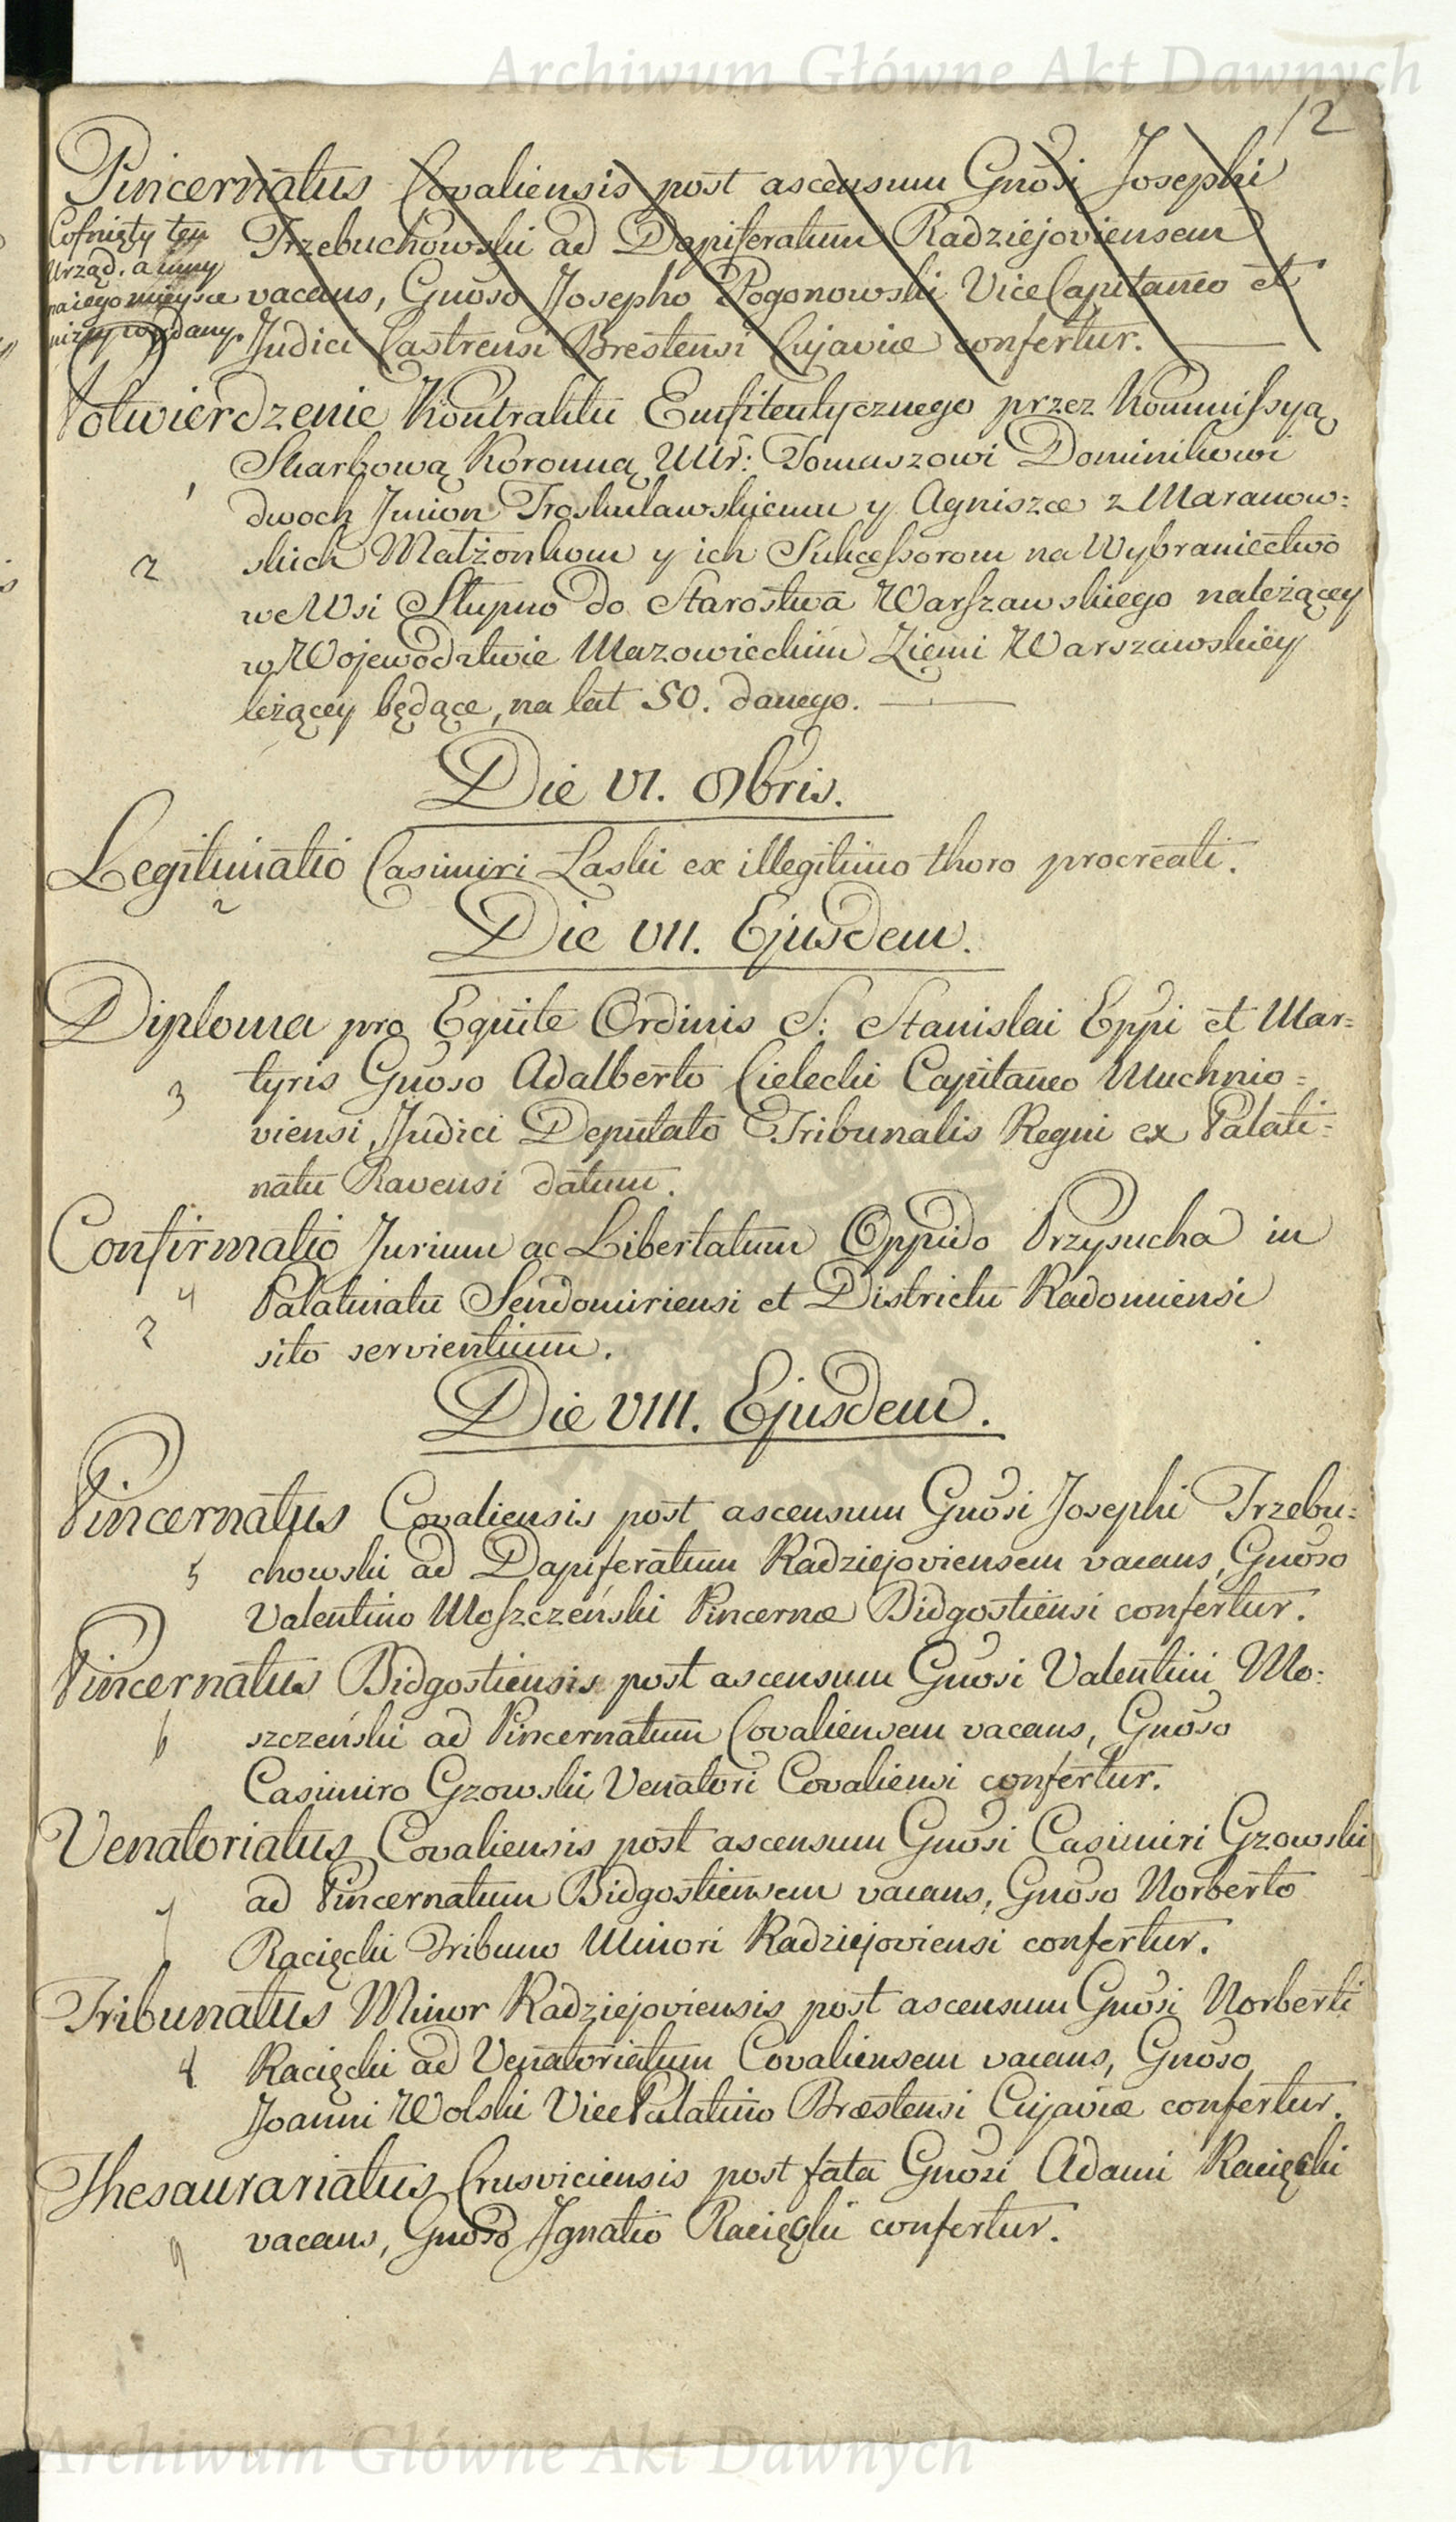 Archiwum Główne Akt Dawnych
12
Pincernatus Covaliensis post ascensum Gnosi Josephi
Trzebuchowski ad Dapiferatum Radziejoviensem
vacans, Gnoso Josepho Pogonowski Vice Capitaneo et
Judici Castrensi Brestensi Cujaviæ confertur.
Cofnięty ten
Urząd, a inny
na iego mieysce
niżey wydany.
Potwierdzenie Kontraktu Emfiteutycznego przez Kommissyą
Skarbową Koronną Ur: Tomaszowi Dominikowi
1
dwoch Imion Troskulawskiemu y Agniszce z Maranow=
2
skich Małżonkom y ich Sukcessorom na Wybraniectwo
we Wsi Słupno do Starostwa Warszawskiego należącey
w Wojewodztwie Mazowieckim Ziemi Warszawskiey
leżącey będące, na lat 50. danego.
Die VI. 9bris.
Legitimatio Casimiri Laski ex illegitimo thoro procreati.
2
Die VII. Ejusdem.
Diploma pro Equite Ordinis S: Stanislai Eppi et Mar=
3
tyris Gnoso Adalberto Cielecki Capitaneo Muchnio=
viensi, Judici Deputato Tribunalis Regni ex Palati=
natu Ravensi datum.
Confirmatio Jurium ac Libertatum Oppido Przysucha in
4
Palatinatu Sendomiriensi et Districtu Radomiensi
2
sito servientium.
Die VIII. Ejusdem.
Pincernatus Covaliensis post ascensum Gnosi Josephi Trzebu=
5
chowski ad Dapiferatum Radziejoviensem vacans, Gnoso
Valentino Moszczeński Pincernæ Bidgostiensi confertur.
Pincernatus Bidgostiensis post ascensum Gnosi Valentini Mo=
6
szczeński ad Pincernatum Covaliensem vacans, Gnoso
Casimiro Gzowski Venatori Covaliensi confertur.
Venatoriatus Covaliensis post ascensum Gnosi Casimiri Gzowski
7
ad Pincernatum Bidgostiensem vacans, Gnoso Norberto
Racięcki Tribuno Minori Radziejoviensi confertur.
Tribunatus Minor Radziejoviensis post ascensum Gnosi Norberti
8
Racięcki ad Venatoriatum Covaliensem vacans, Gnoso
Joanni Wolski Vice Palatino Bræstensi Cujaviæ confertur.
Thesaurariatus Crusviciensis post fata Gnosi Adami Racięcki
9
vacans, Gnoso Ignatio Racięcki confertur.
Archiwum Główne Akt Dawnych